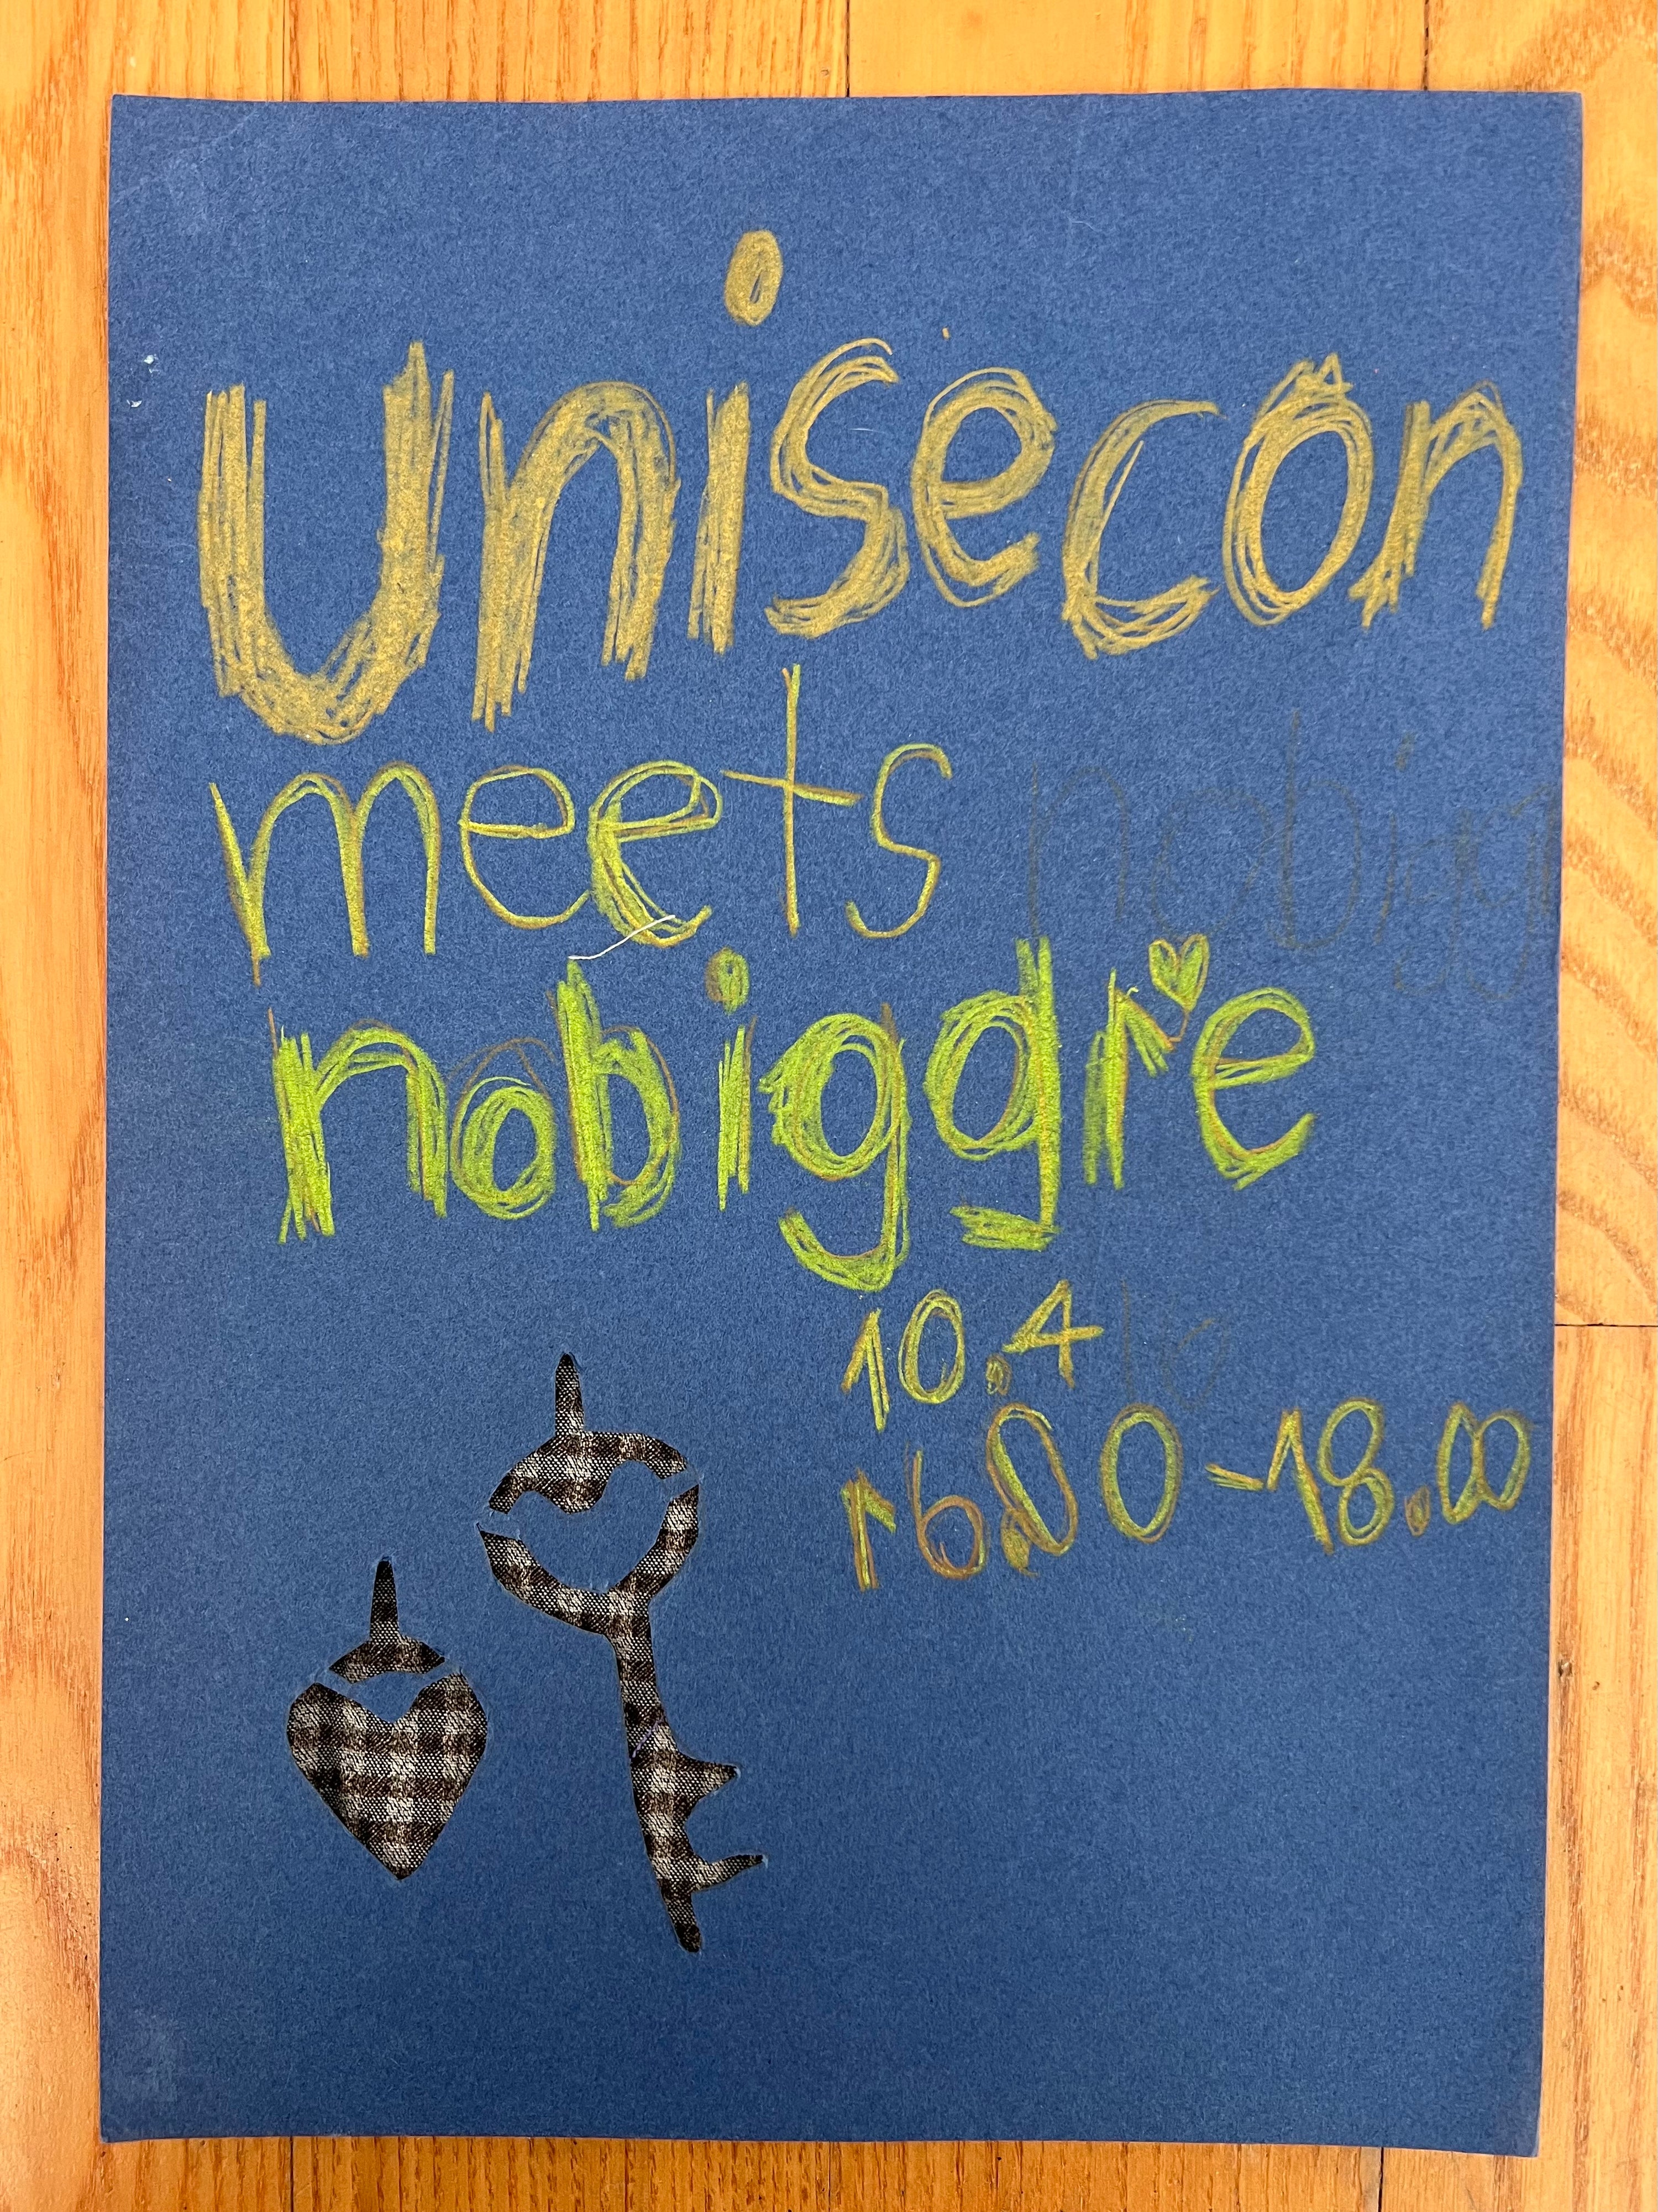 unisecon
meets nobigg
nobiggre
10.4
16.00-18.00